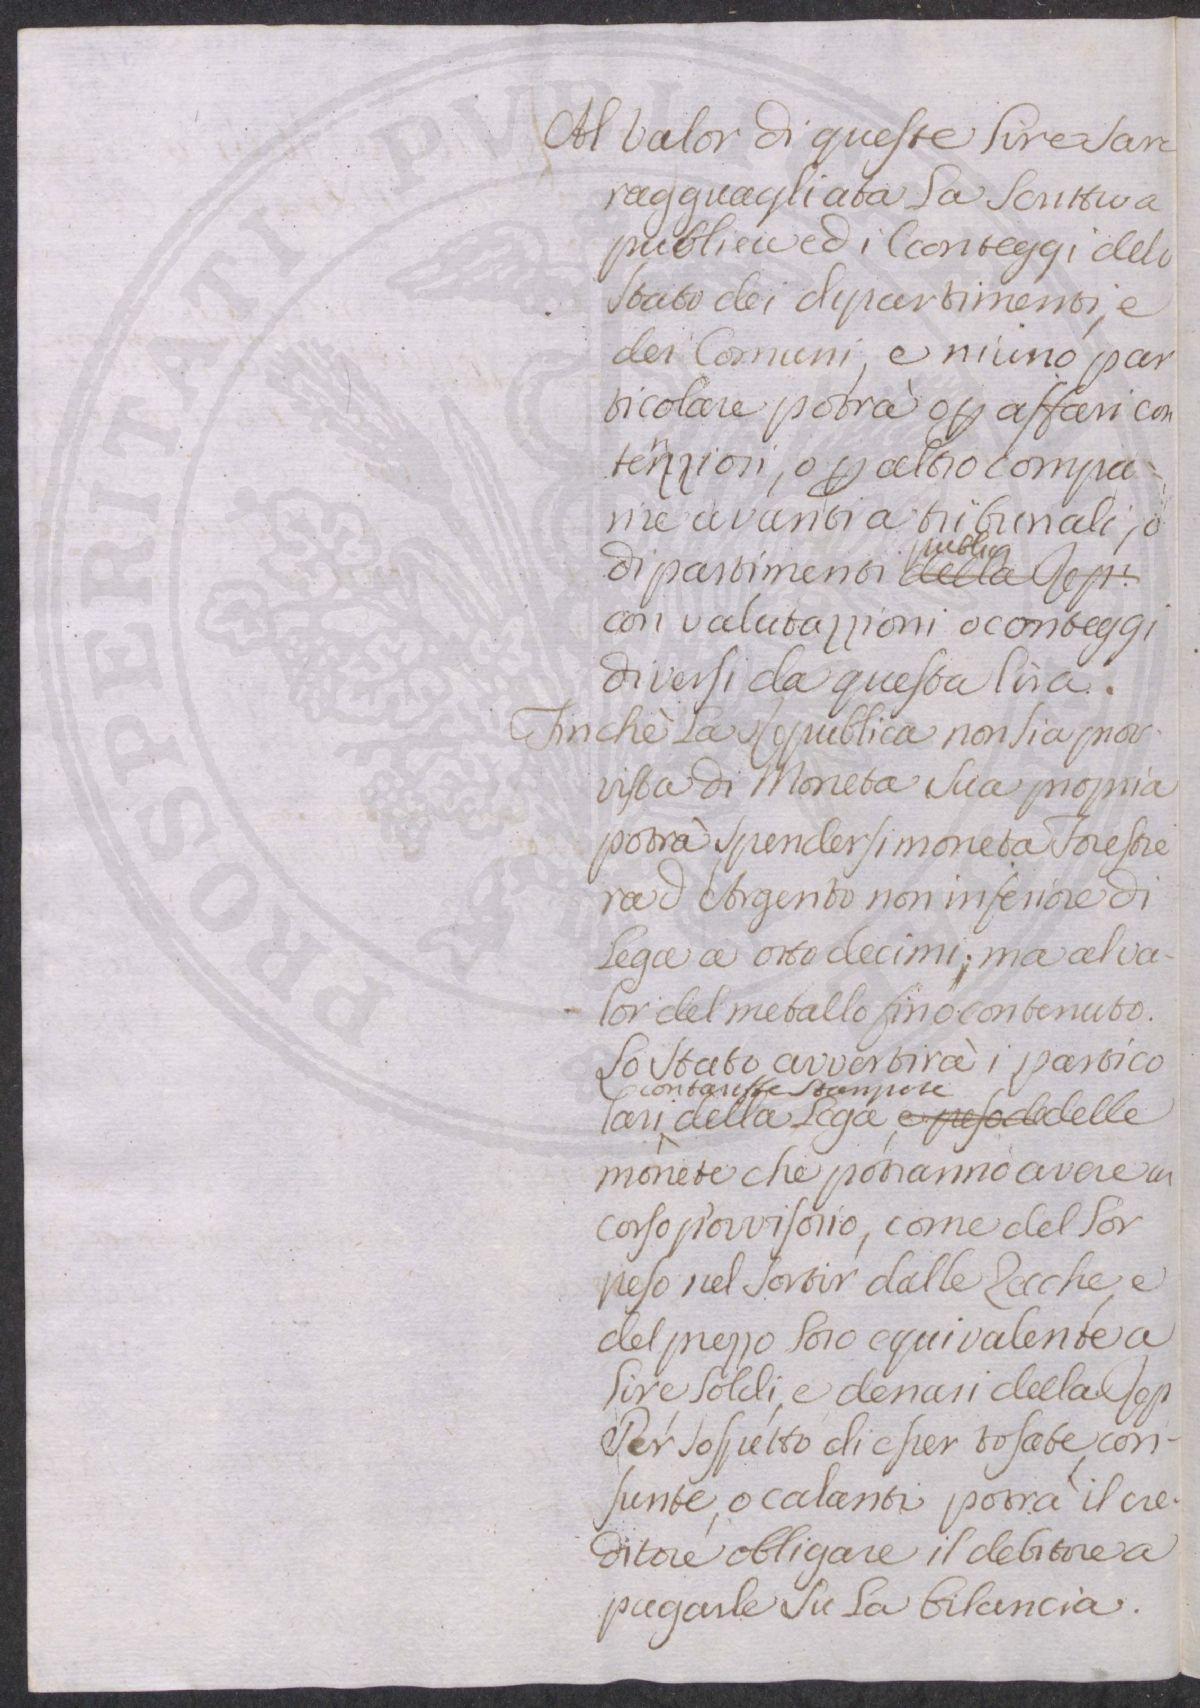 Al valor di queste Lire sarà
ragguagliata la Scrittura
publica ed i Conteggi dello
Stato dei dipartimenti, e
dei Comuni, e niuno par
ticolare potrà o p affari con
tenzziosi, o p altro compa-
rire avanti a tribunali, o
publici
dipartimenti della Rep:
con valutazzioni o conteggi
diversi da questa lira.
Finchè la Republica non sia prov-
vista di Moneta sua propria
potrà spendersi moneta Forestie
ra d'Argento non inferiore di
Lega a otto decimi; ma al va-
lor del metallo fino contenuto.
Lo Stato avvertirà i partico
con tariffe stampate
lari della Lega, e peso de delle
monete che potranno avere un
corso provvisorio, come del lor
peso nel sortir dalle Zecche, e
del prezzo loro equivalente a
Lire Soldi, e denari della Rep
Per sospetto di esser tosate, con-
sunte, o calanti potrà il cre-
ditore obligare il debitore a
pagarle su la bilancia.
PROSPERITATI PVBLIC